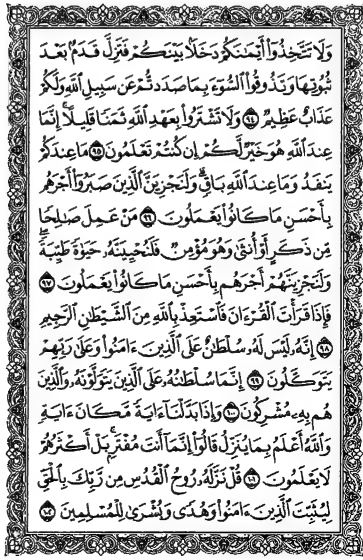 وَلَا تَتَّخِذُوٓاْ أَيْمَٰنَكُمْ دَخَلَۢا بَيْنَكُمْ فَتَزِلَّ قَدَمُۢ بَعْدَ
ثُبُوتِهَا وَتَذُوقُواْ ٱلسُّوٓءَ بِمَا صَدَدتُّمْ عَن سَبِيلِ ٱللَّهِ وَلَكُمْ
عَذَابٌ عَظِيمٌ ٩٤ وَلَا تَشْتَرُواْ بِعَهْدِ ٱللَّهِ ثَمَنًا قَلِيلًا ۚ إِنَّمَا
عِندَ ٱللَّهِ هُوَ خَيْرٌ لَّكُمْ إِن كُنتُمْ تَعْلَمُونَ ٩٥ مَا عِندَكُمْ
يَنفَدُ وَمَا عِندَ ٱللَّهِ بَاقٍ ۗ وَلَنَجْزِيَنَّ ٱلَّذِينَ صَبَرُوٓاْ أَجْرَهُم
بِأَحْسَنِ مَا كَانُواْ يَعْمَلُونَ ٩٦ مَنْ عَمِلَ صَٰلِحًا
مِّن ذَكَرٍ أَوْ أُنثَىٰ وَهُوَ مُؤْمِنٌ فَلَنُحْيِيَنَّهُۥ حَيَوٰةً طَيِّبَةً ۖ
وَلَنَجْزِيَنَّهُمْ أَجْرَهُم بِأَحْسَنِ مَا كَانُواْ يَعْمَلُونَ ٩٧
فَإِذَا قَرَأْتَ ٱلْقُرْءَانَ فَٱسْتَعِذْ بِٱللَّهِ مِنَ ٱلشَّيْطَٰنِ ٱلرَّجِيمِ
٩٨ إِنَّهُۥ لَيْسَ لَهُۥ سُلْطَٰنٌ عَلَى ٱلَّذِينَ ءَامَنُواْ وَعَلَىٰ رَبِّهِمْ
يَتَوَكَّلُونَ ٩٩ إِنَّمَا سُلْطَٰنُهُۥ عَلَى ٱلَّذِينَ يَتَوَلَّوْنَهُۥ وَٱلَّذِينَ
هُم بِهِۦ مُشْرِكُونَ ١٠٠ وَإِذَا بَدَّلْنَآ ءَايَةً مَّكَانَ ءَايَةٍ ۙ
وَٱللَّهُ أَعْلَمُ بِمَا يُنَزِّلُ قَالُوٓاْ إِنَّمَآ أَنتَ مُفْتَرٍۭ ۚ بَلْ أَكْثَرُهُمْ
لَا يَعْلَمُونَ ١٠١ قُلْ نَزَّلَهُۥ رُوحُ ٱلْقُدُسِ مِن رَّبِّكَ بِٱلْحَقِّ
لِيُثَبِّتَ ٱلَّذِينَ ءَامَنُواْ وَهُدًى وَبُشْرَىٰ لِلْمُسْلِمِينَ ١٠٢